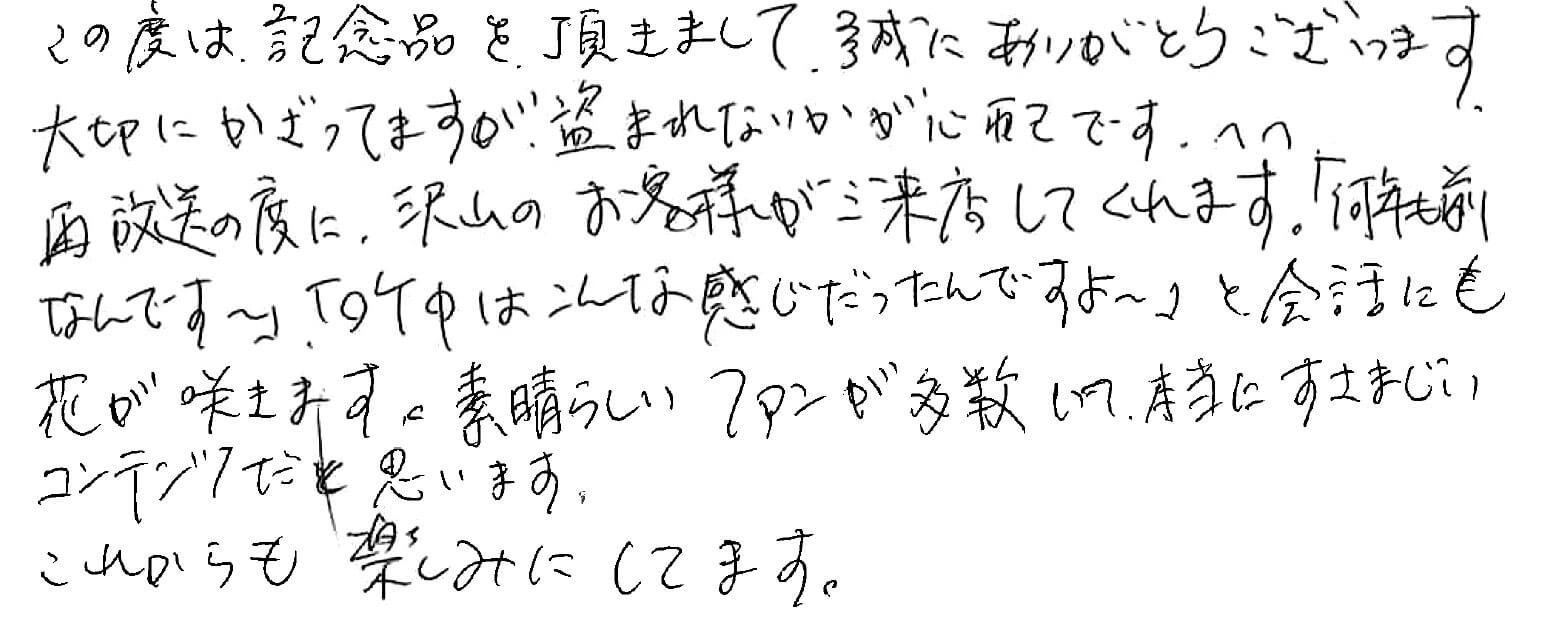 この度は、記念品を、頂きまして、誠にありがとうございます。
大切にかざってますが、盗まれないかが心配です。へへ
再放送の度に、沢山のお客様がご来店してくれます。「何年も前
なんです～」、「ロケ中はこんな感じだったんですよ～」と会話にも
花が咲きます。素晴らしいファンが多数いて、本当にすさまじい
コンテンツだと思います。
これからも楽しみにしてます。